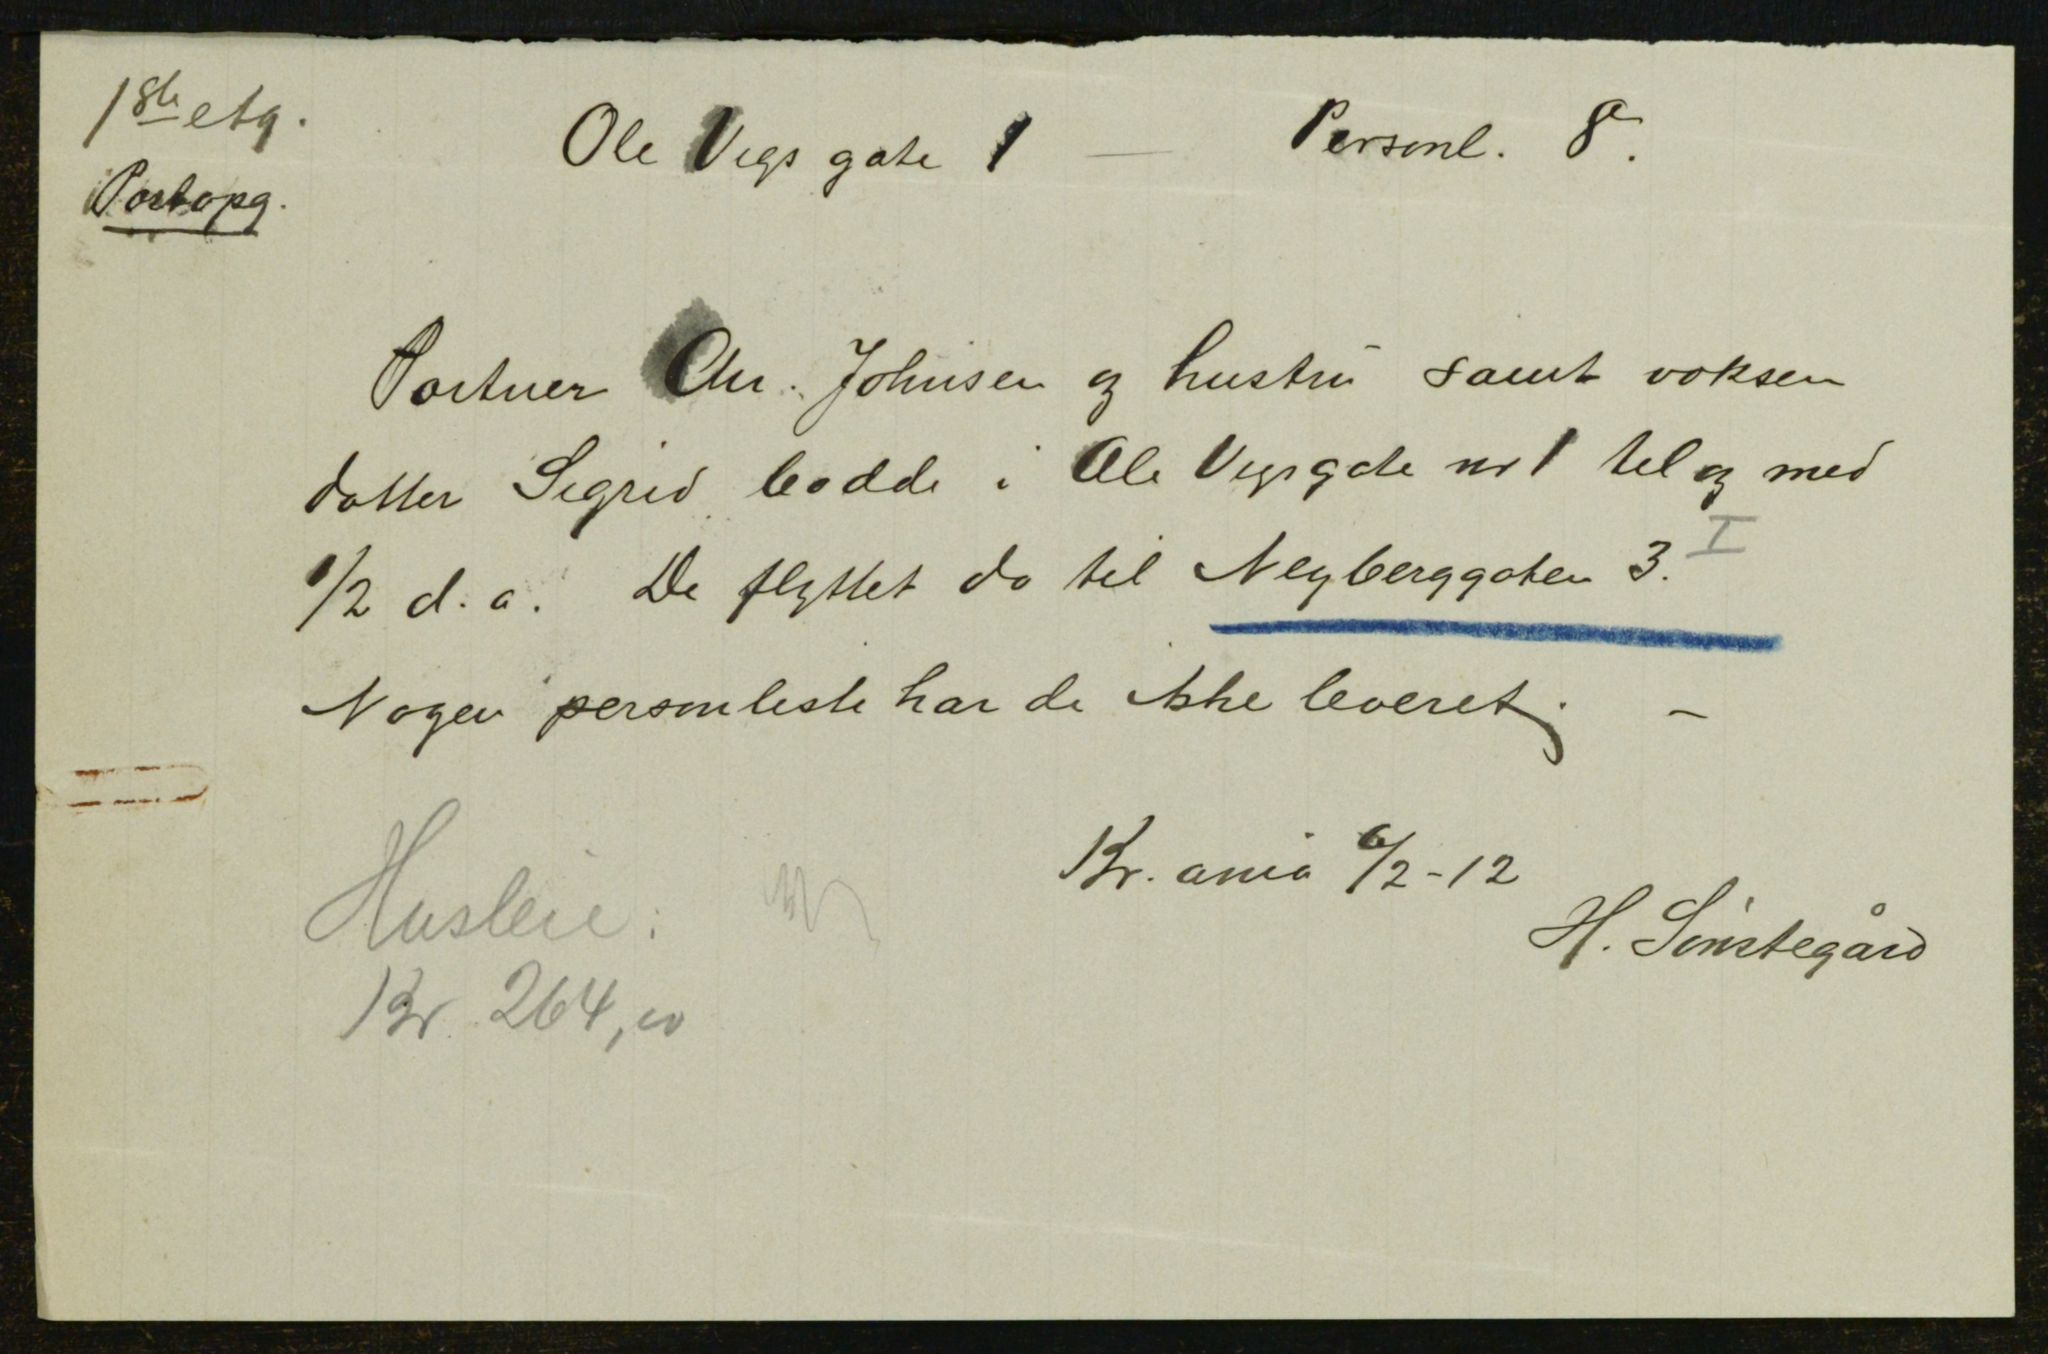 1ste etg.
Portopg.
Ole Vigs gate 1 — Personl. 8a.
Portner Chr. Johnsen og hustru samt voksen
datter Sigrid bodde i Ole Vigsgate nr 1 til og med
1/2 d. a. De flyttet da til Neyberggaten 3. I
Nogen personliste har de ikke leveret. –
Kr. ania 6/2-12
H. Sönstegård
Husleie:
Kr. 264,00